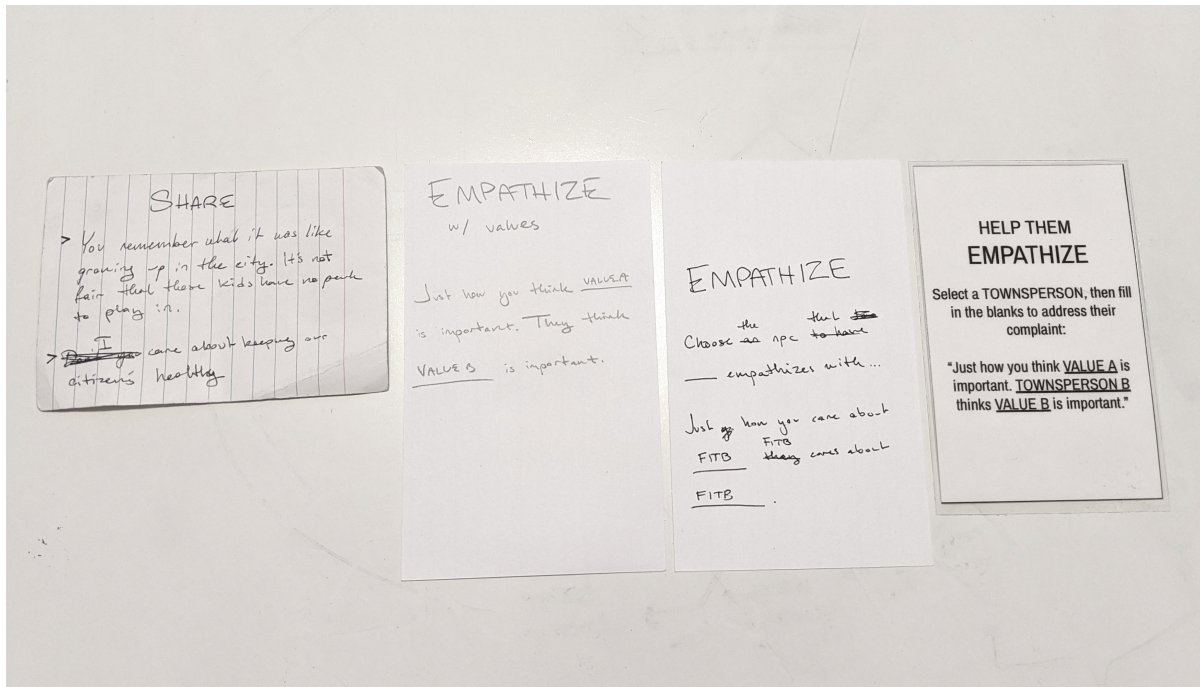 SHARE
> You remember what it was like
growing up in the city. It's not
fair that these kids have no park
to play in.
> I care about keeping our
citizens healthy
EMPATHIZE
w/ values
Just how you think VALUE A
is important. They think
VALUE B is important.
EMPATHIZE
Choose the npc that
___ empathizes with...
Just how you care about
FITB FITB cares about
FITB.
HELP THEM
EMPATHIZE
Select a TOWNSPERSON, then fill
in the blanks to address their
complaint:
“Just how you think VALUE A is
important. TOWNSPERSON B
thinks VALUE B is important.”